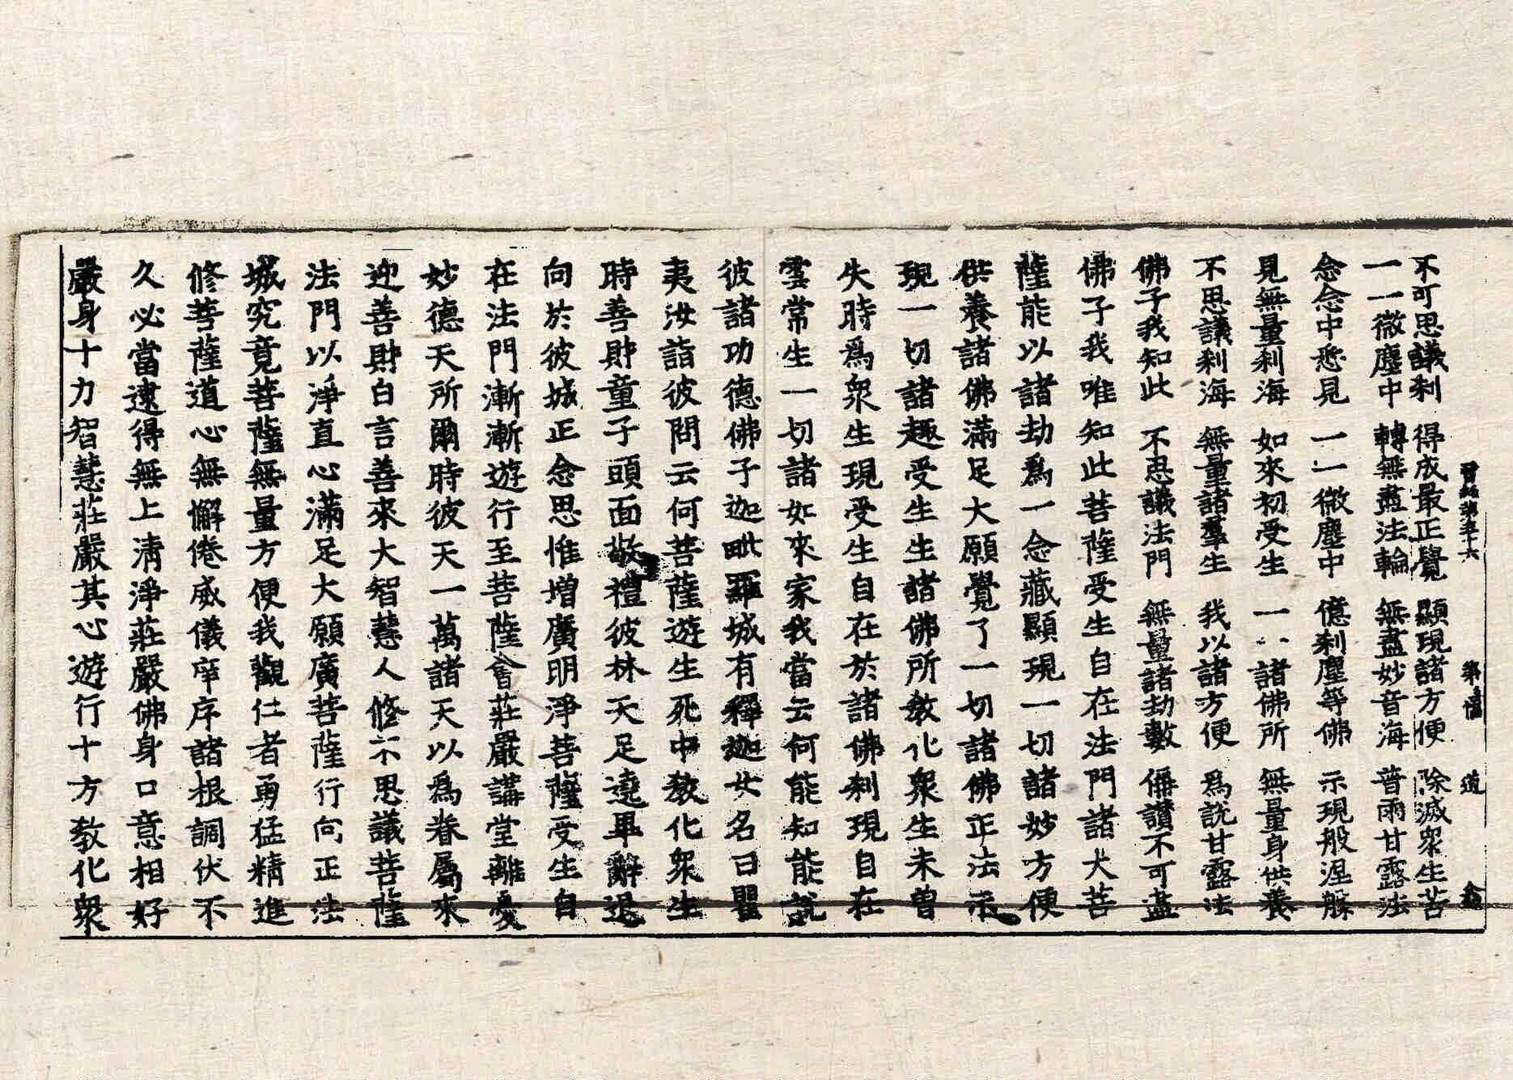 晉經第五十六 第十幅 道
不可思議刹 得成最正覺 顯現諸方便 除滅衆生苦
一一微塵中 轉無盡法輪 無盡妙音海 普雨甘露法
念念中悉見 一一微塵中 億刹塵等佛 示現般涅槃
見無量刹海 如來初受生 一一諸佛所 無量身供養
不思議刹海 無量諸羣生 我以諸方便 爲說甘露法
佛子我知此 不思議法門 無量諸劫數 稱讃不可盡
佛子我唯知此菩薩受生自在法門諸大菩
薩能以諸劫爲一念藏顯現一切諸妙方便
供養諸佛滿足大願覺了一切諸佛正法示
現一切諸趣受生生諸佛所教化衆生未曾
失時爲衆生現受生自在於諸佛刹現自在
雲常生一切諸如來家我當云何能知能說
彼諸功德佛子迦毗羅城有釋迦女名曰瞿
夷汝詣彼問云何菩薩遊生死中教化衆生
時善財童子頭面敬禮彼林天足遶畢辭退
向於彼城正念思惟增廣明淨菩薩受生自
在法門漸漸遊行至菩薩會莊嚴講堂離憂
妙德天所爾時彼天一萬諸天以爲眷屬來
迎善財白言善來大智慧人修不思議菩薩
法門以淨直心滿足大願廣菩薩行向正法
城究竟菩薩無量方便我觀仁者勇猛精進
修菩薩道心無懈倦威儀庠序諸根調伏不
久必當逮得無上清淨莊嚴佛身口意相好
嚴身十力智慧莊嚴其心遊行十方教化衆